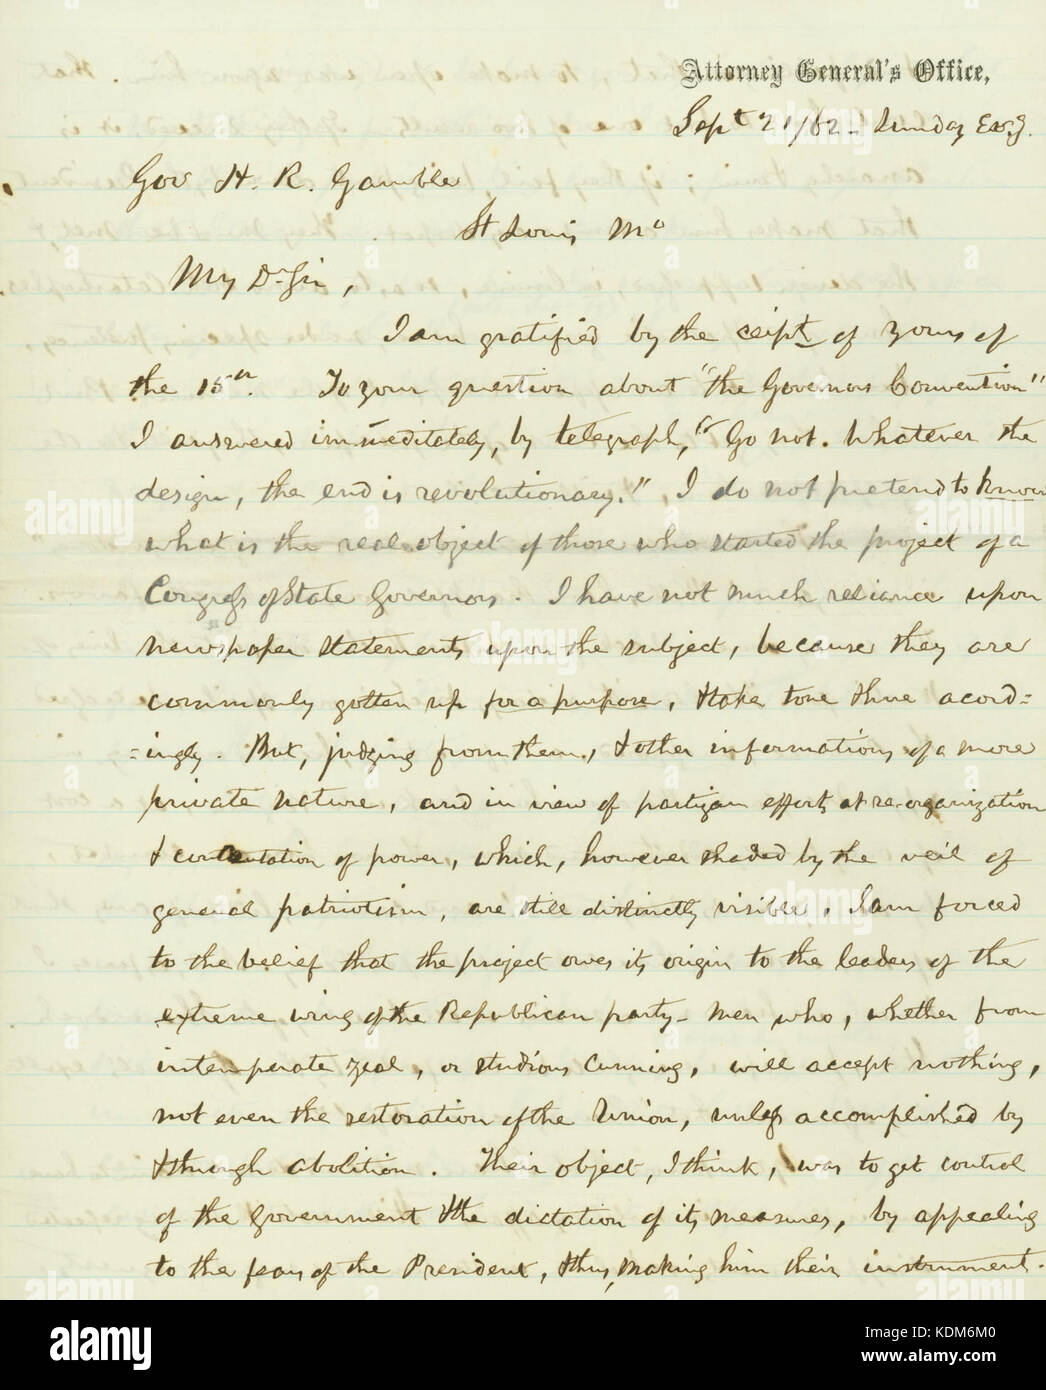 Attorney General's Office,
Sept 21/62 - Sunday Evg.
Gov H. R. Gamble
St Louis Mo
My Dr Sir,
I am gratified by the ceipt of yours of
the 15th. To your question about "the Governors Convention"
I answered immeditately, by telegraph, "Go not. Whatever the
design, the end is revolutionary." I do not pretend to know
what is the real object of those who started the project of a
Congress of State Governors. I have not much reliance upon
newspaper statements upon the subject, because they are
commonly gotten up for a purpose, & take tone & hue acord=
=ingly. But, judging from them, & other informations of a more
private nature, and in view of partizan efforts at re-organization
& of power, which, however shaded by the veil of
general patriotism, are still distinctly visible, I am forced
to the belief that the project owes its origin to the leaders of the
extreme wing of the Republican party - men who, whether from
intemperate zeal, or studious cunning, will accept nothing,
not even the restoration of the Union, unless accomplished by
& through abolition. Their object, I think, was to get control
of the Government & the dictation of its measures, by appealing
to the fears of the President, & thus, making him their instrument.
alamy
KDM6M0
www.alamy.com